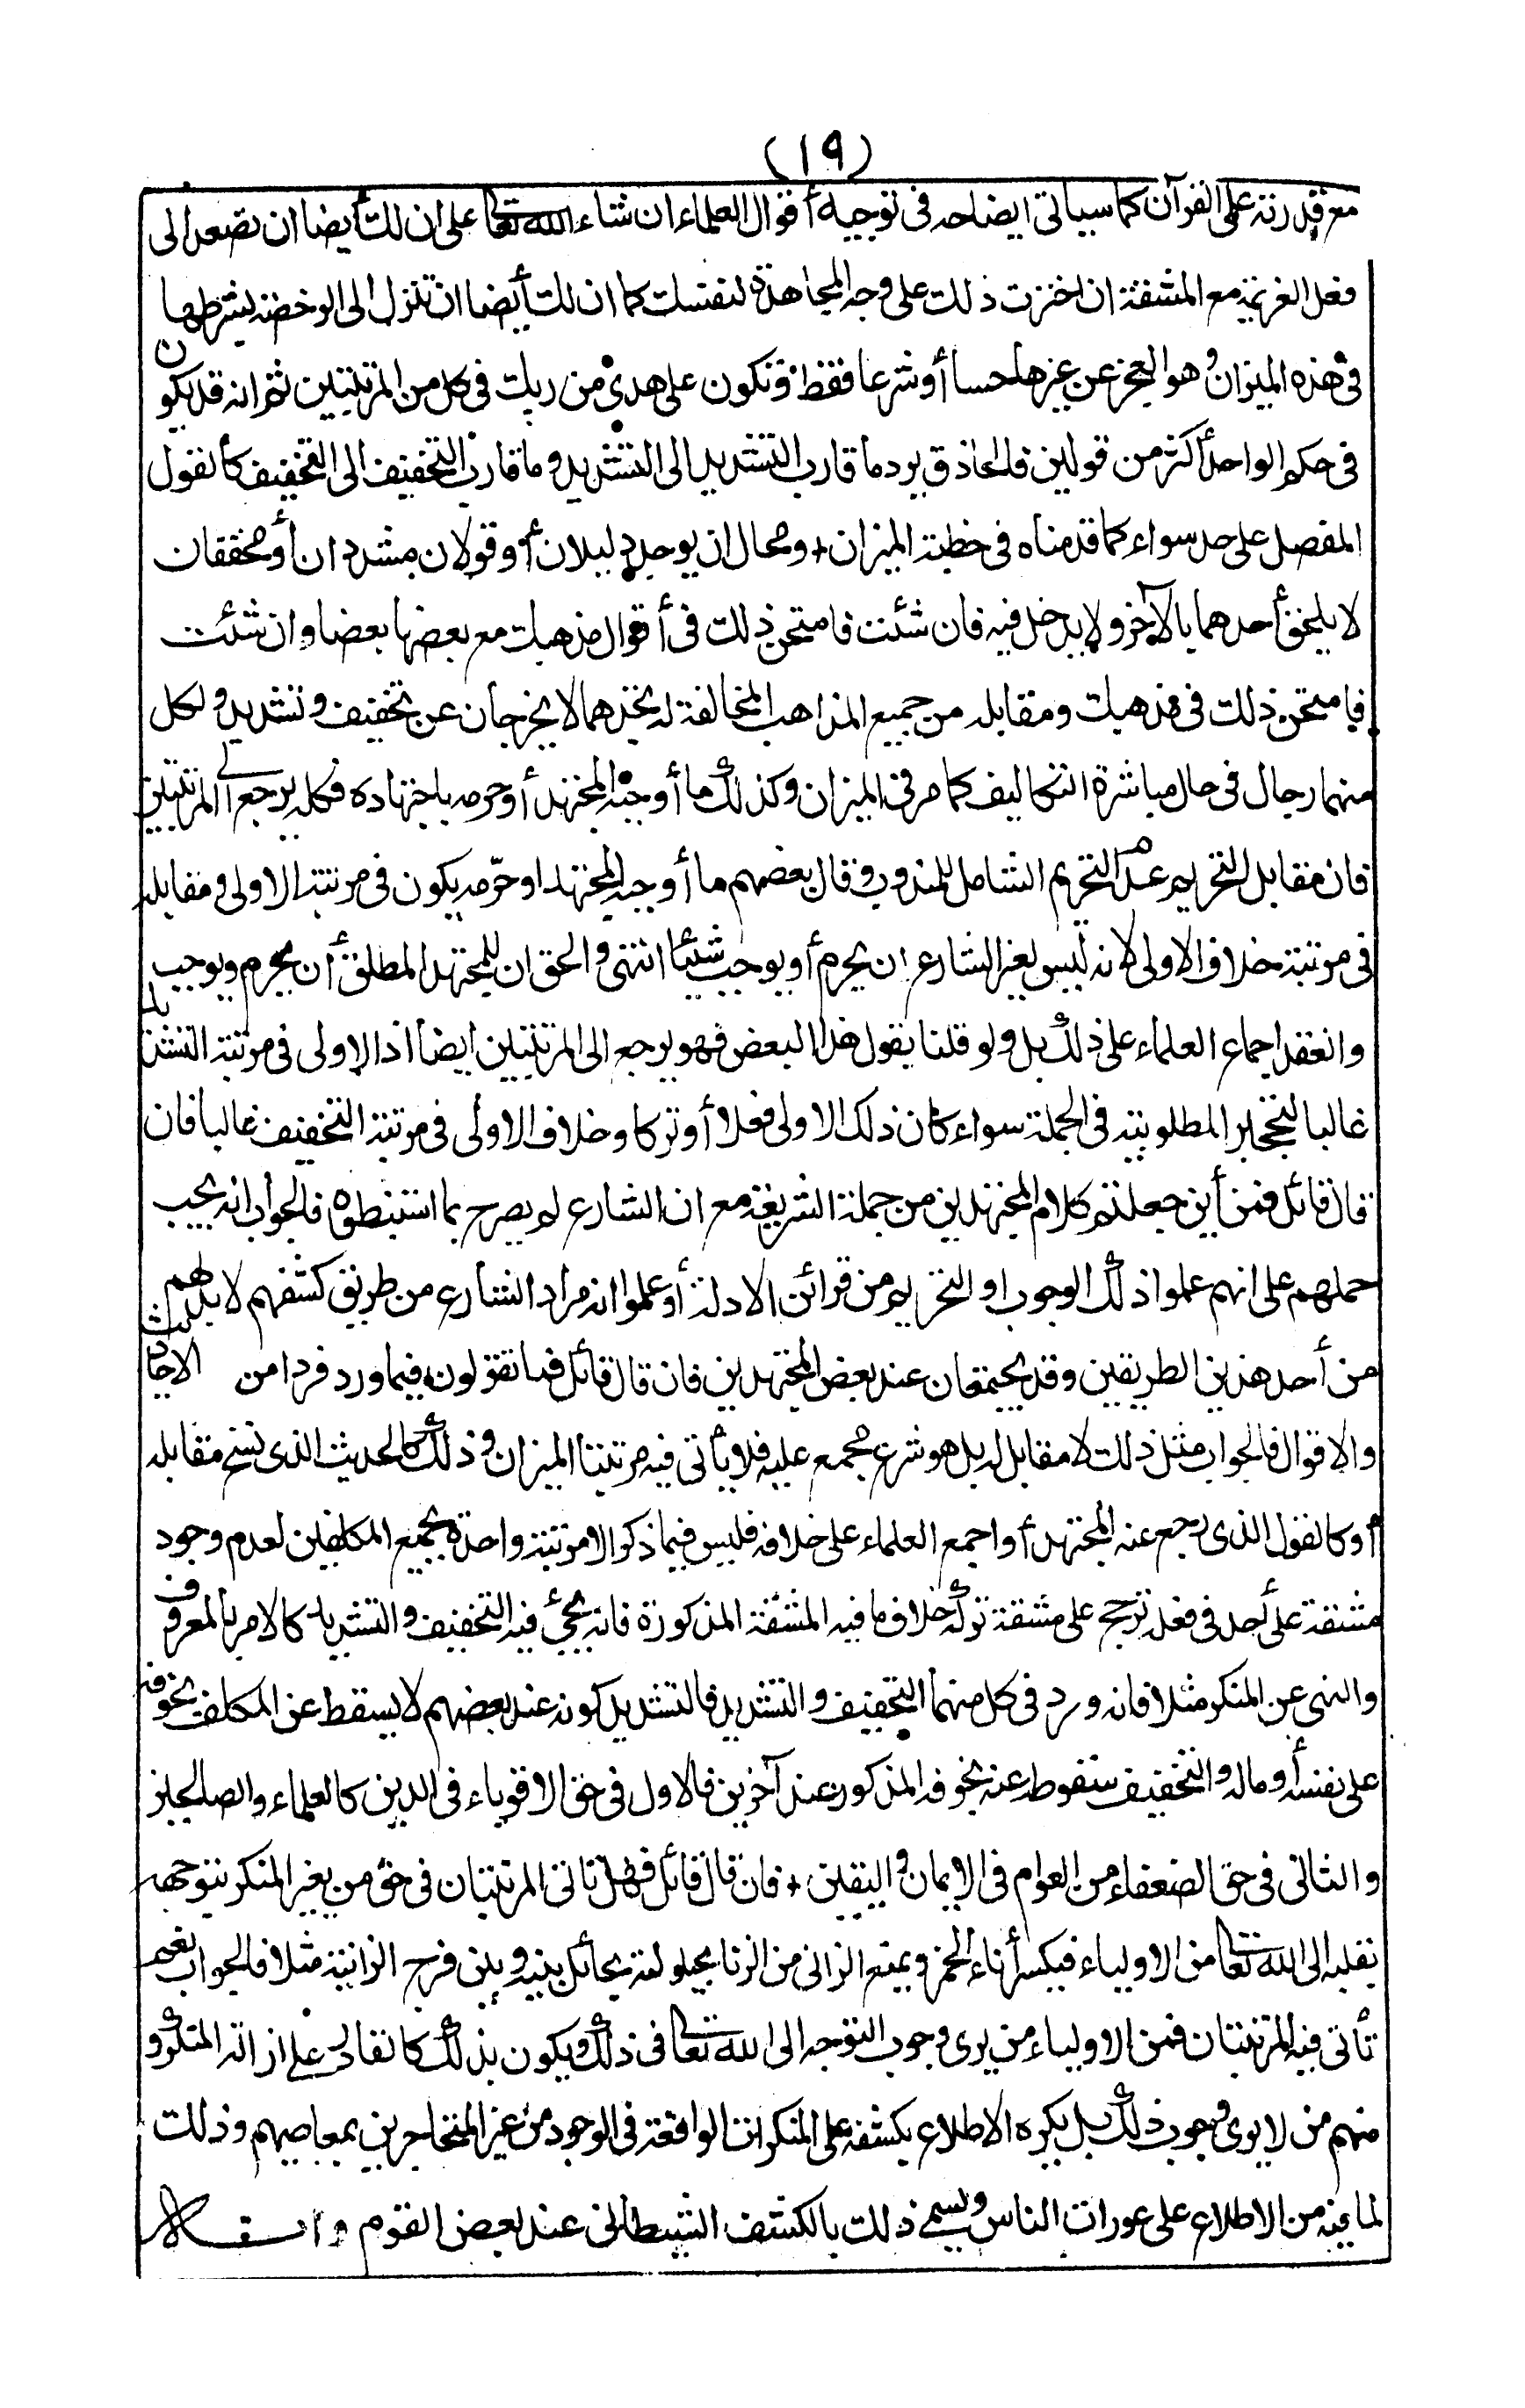 (١٩)
مع قدرته على القرآن كما سيأتي ايضاحه في توجيه أقوال العلماء ان شاء الله تعالى على ان لك أيضا ان تصعد الى
فعل العزيمة مع المشقة ان اخترت ذلك على وجه المجاهدة لنفسك كما ان لك أيضا ان تنزل الى الرخصة بشرطها
في هذه الميزان وهو العجز عن غيرها حسا أو شرعا فقط وتكون على هدى من ربك في كل من المرتبتين ثم انه قد يكون
في حكم الواحد أكثر من قولين فالحاذق يرد ما قارب التشديد الى التشديد وما قارب التخفيف الى التخفيف كالقول
المفصل على حد سواء كما قدمناه في خطبة الميزان + ومحال ان يوجد دليلان أو قولان مشددان أو مخففان
لا يلحق أحدهما بالآخر ولا يدخل فيه فان شئت فامتحن ذلك في أقوال مذهبك مع بعضها بعضا وان شئت
فامتحن ذلك في مذهبك ومقابله من جميع المذاهب المخالفة له تجدهما لا يخرجان عن تخفيف وتشديد ولكل
منهما رجال في حال مباشرة التكاليف كما مر في الميزان وكذلك ما أوجبه المجتهد أو حرمه باجتهاده فكله يرجع الى المرتبتين
فان مقابل التحريم عدم التحريم الشامل للمندوب وقال بعضهم ما أوجبه المجتهد او حرّمه يكون في مرتبة الاولى ومقابله
في مرتبة خلاف الاولى لانه ليس لغير الشارع ان يحرم أو يوجب شيئا انتهى والحق ان للمجتهد المطلق أن يحرم ويوجب
وانعقد اجماع العلماء على ذلك بل ولو قلنا بقول هذا البعض فهو يرجع الى المرتبتين ايضا اذ الاولى في مرتبة التشديد
غالبا لتحجير المطلوبية في الجملة سواء كان ذلك الاولى فعلا أو تركا وخلاف الاولى في مرتبة التخفيف غالبا فان
قال قائل فمن أين جعلتم كلام المجتهدين من جملة الشريعة مع ان الشارع لم يصرح بما استنبطوه فالجواب انه يجب
حملهم على انهم علموا ذلك الوجوب او التحريم من قرائن الادلة أو علموا انه مراد الشارع من طريق كشفهم لا بد لهم
من أحد هذين الطريقين وقد يجتمعان عند بعض المجتهدين فان قال قائل فما تقولون فيما ورد فردا من الاحاديث
والاقوال فالجواب مثل ذلك لا مقابل له بل هو شرع مجمع عليه فلا يأتي فيه مرتبتا الميزان وذلك كالحديث الذي نسخ مقابله
أو كالقول الذي رجع عنه المجتهد أو اجمع العلماء على خلافه فليس فيما ذكر الا مرتبة واحدة لجميع المكلفين لعدم وجود
مشقة على أحد في فعله ترجح على مشقة تركه خلاف ما فيه المشقة المذكورة فانه يجيء فيه التخفيف والتشديد كالامر بالمعروف
والنهي عن المنكر مثلا فانه ورد في كل منهما التخفيف والتشديد فالتشديد كونه عند بعضهم لا يسقط عن المكلف بخوفه
على نفسه أو ماله والتخفيف سقوطه عنه بخوفه المذكور عند آخرين فالاول في حق الاقوياء في الدين كالعلماء والصالحين
والثاني في حق الضعفاء من العوام في الايمان واليقين + فان قال قائل فهل تاتي المرتبتان في حق من يغير المنكر بتوجهه
بقلبه الى الله تعالى من الاولياء فيكسر أناء الخمر ويمنع الزاني من الزنا بحيلولته بحائل بينه وبين فرج الزانية مثلا فالجواب نعم
تأتي فيه المرتبتان فمن الاولياء من يرى وجوب التوجه الى الله تعالى في ذلك ويكون بذلك كالقادر على ازالة المنكر و
منهم من لا يرى وجوب ذلك بل يكره الاطلاع بكشفه على المنكرات الواقعة في الوجود من غير المتجاهرين بمعاصيهم وذلك
لما فيه من الاطلاع على عورات الناس ويسمى ذلك بالكشف الشيطاني عند بعض القوم